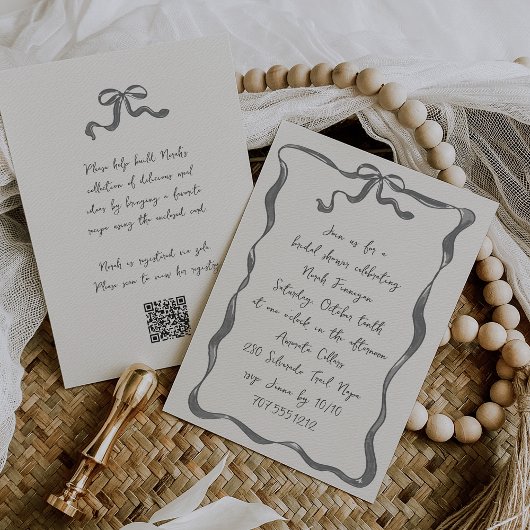 Please help build Norah's
collection of delicious meal
ideas by bringing a favorite
recipe using the enclosed card.
Norah is registered via zola
Please scan to view her registry
Join us for a
bridal shower celebrating
Norah Finnegan
Saturday, October tenth
at one o'clock in the afternoon
Amapola Cellars
280 Silverado Trail Napa
rsvp Jenna by 10/10
707.555.1212